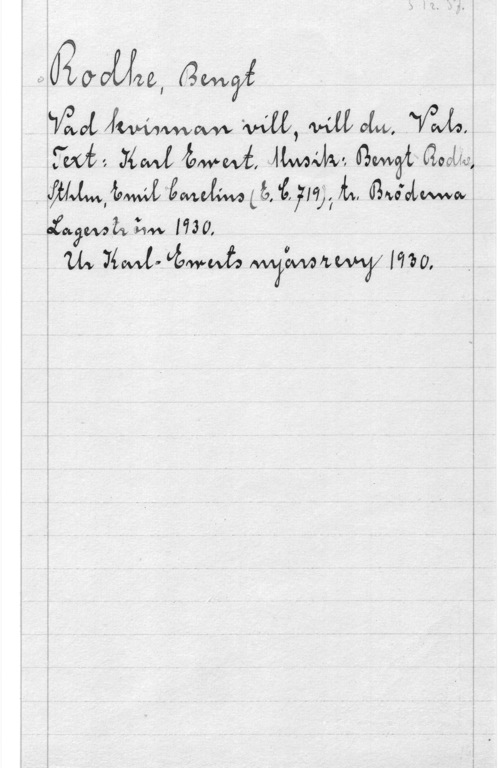 S 12. 57.
Rodhe, Bengt
Vad kvinnan vill, vill du. Vals.
Text: Karl Ewert. Musik: Bengt Rodhe.
Sthlm, Emil Carelius (E. C. 719); tr. Bröderna
Lagerström 1930.
Ur Karl-Ewerts nyårsrevy 1930.